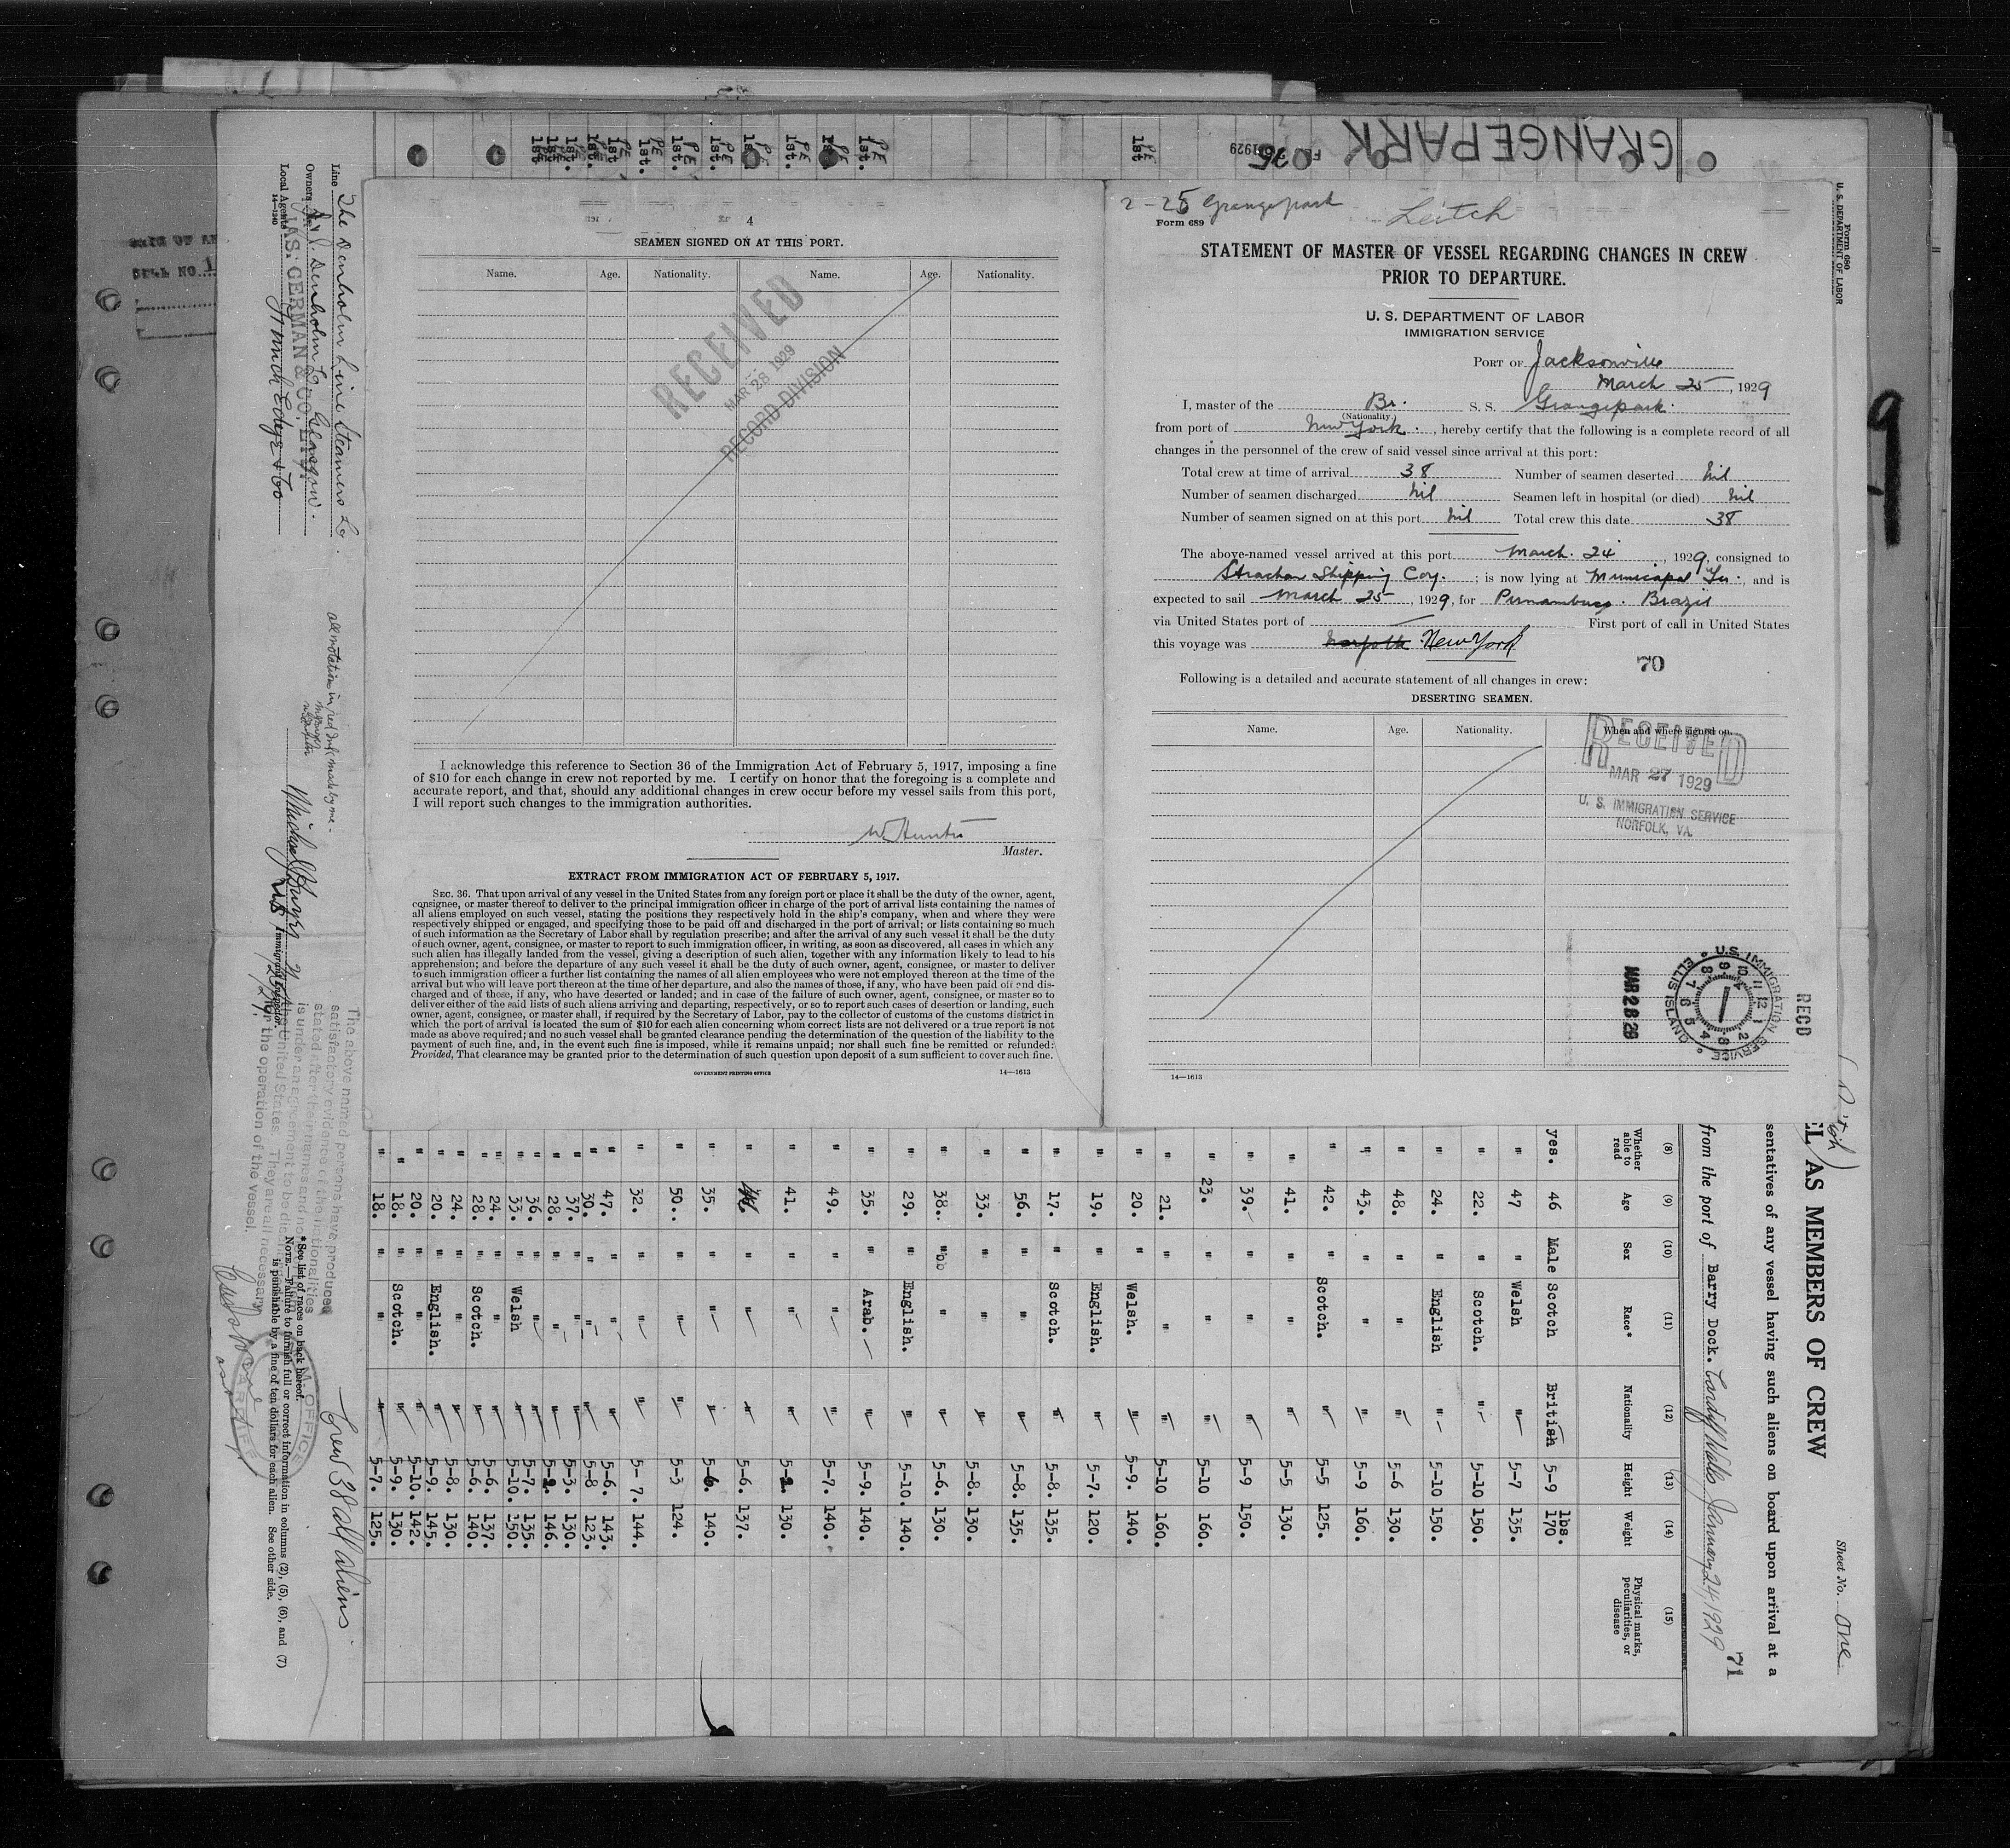 GRANGEPARK
2-25 Grangepark
Leitch
Form 689
STATEMENT OF MASTER OF VESSEL REGARDING CHANGES IN CREW
PRIOR TO DEPARTURE.
U. S. DEPARTMENT OF LABOR
IMMIGRATION SERVICE
PORT OF Jacksonville
March 25, 1929
I, master of the Br. S. S. Grangepark.
(Nationality.)
from port of New York., hereby certify that the following is a complete record of all
changes in the personnel of the crew of said vessel since arrival at this port:
Total crew at time of arrival 38 Number of seamen deserted Nil
Number of seamen discharged Nil Seamen left in hospital (or died) Nil
Number of seamen signed on at this port Nil Total crew this date 38
The above-named vessel arrived at this port March. 24, 1929, consigned to
Strachan Shipping Coy.; is now lying at Municipal, and is
expected to sail March 25, 1929, for Pernambuco. Brazil
via United States port of First port of call in United States
this voyage was Norfolk New York
70
Following is a detailed and accurate statement of all changes in crew:
DESERTING SEAMEN.
Name. Age. Nationality. When and where signed on.
RECEIVED
MAR 27 1929
U. S. IMMIGRATION SERVICE
NORFOLK, VA.
U.S. IMMIGRATION SERVICE ELLIS ISLAND
MAR 28 29
RECD
14—1613
4
SEAMEN SIGNED ON AT THIS PORT.
Name. Age. Nationality. Name. Age. Nationality.
RECEIVED
MAR 28 1929
RECORD DIVISION
I acknowledge this reference to Section 36 of the Immigration Act of February 5, 1917, imposing a fine
of $10 for each change in crew not reported by me. I certify on honor that the foregoing is a complete and
accurate report, and that, should any additional changes in crew occur before my vessel sails from this port,
I will report such changes to the immigration authorities.
W. Hunter
Master.
EXTRACT FROM IMMIGRATION ACT OF FEBRUARY 5, 1917.
SEC. 36. That upon arrival of any vessel in the United States from any foreign port or place it shall be the duty of the owner, agent,
consignee, or master thereof to deliver to the principal immigration officer in charge of the port of arrival lists containing the names of
all aliens employed on such vessel, stating the positions they respectively hold in the ship's company, when and where they were
respectively shipped or engaged, and specifying those to be paid off and discharged in the port of arrival; or lists containing so much
of such information as the Secretary of Labor shall by regulation prescribe; and after the arrival of any such vessel it shall be the duty
of such owner, agent, consignee, or master to report to such immigration officer, in writing, as soon as discovered, all cases in which any
such alien has illegally landed from the vessel, giving a description of such alien, together with any information likely to lead to his
apprehension; and before the departure of any such vessel it shall be the duty of such owner, agent, consignee, or master to deliver
to such immigration officer a further list containing the names of all alien employees who were not employed thereon at the time of the
arrival but who will leave port thereon at the time of her departure, and also the names of those, if any, who have been paid off and dis-
charged and of those, if any, who have deserted or landed; and in case of the failure of such owner, agent, consignee, or master so to
deliver either of the said lists of such aliens arriving and departing, respectively, or so to report such cases of desertion or landing, such
owner, agent, consignee, or master shall, if required by the Secretary of Labor, pay to the collector of customs of the customs district in
which the port of arrival is located the sum of $10 for each alien concerning whom correct lists are not delivered or a true report is not
made as above required; and no such vessel shall be granted clearance pending the determination of the question of the liability to the
payment of such fine, and, in the event such fine is imposed, while it remains unpaid; nor shall such fine be remitted or refunded:
Provided, That clearance may be granted prior to the determination of such question upon deposit of a sum sufficient to cover such fine.
GOVERNMENT PRINTING OFFICE
14—1613
Form 680
U. S. DEPARTMENT OF LABOR
Sheet No. One
AS MEMBERS OF CREW
sentatives of any vessel having such aliens on board upon arrival at a
from the port of Barry Dock. Cardiff Wales January 24, 1929
71
(8) (9) (10) (11) (12) (13) (14) (15)
Whether able to read Age Sex Race* Nationality Height Weight Physical marks, peculiarities, or disease
yes. 46 Male Scotch British 5-9 lbs. 170
" 47 " Welsh " 5-7 135.
" 22. " Scotch. " 5-10 150.
" 24. " English " 5-10 150.
" 48. " " " 5-6 130.
" 43. " " " 5-9 160.
" 42. " Scotch. " 5-5 125.
" 41. " " " 5-5 130.
" 39. " " " 5-9 150.
" 23. " " " 5-10 160.
" 21. " " " 5-10 160.
" 20. " Welsh. " 5-9. 140.
" 19. " English. " 5-7. 120.
" 17. " Scotch. " 5-8. 135.
" 56. " " " 5-8. 135.
" 33. " " " 5-8. 130.
" 38. " " " 5-6. 130.
" 29. " English. " 5-10. 140.
" 35. " Arab. " 5-9. 140.
" 49. " " " 5-7. 140.
" 41. " " " 130.
" " " " 5-6. 137.
" 35. " " " 5-6. 140.
" 50. " " " 5-3 124.
" 32. " " " 5-7. 144.
" 47. " " " 5-6. 143.
" 30. " " " 5-8 123.
" 37. " " " 5-3. 130.
" 28. " " " 146.
" 36. " " " 5-7. 135.
" 33. " Welsh " 5-10. 150.
" 24. " " " 5-6. 137.
" 28. " Scotch. " 5-6. 140.
" 24. " " " 5-8. 130.
" 20. " English. " 5-9. 145.
" 20. " " " 5-10. 142.
" 18. " Scotch. " 5-9. 130.
" 18. " " " 5-7. 125.
Line The Denholm Line Steamers Ld.
Owners J. & J. Denholm Ld Glasgow.
Local Agents
JAS. GERMAN & CO.
14—1240
all notations in red ink made by me -
Immigrant Inspector.
The above named persons have produced
satisfactory evidence of the nationalities
stated after their names and
is under an agreement to be
the United States. They are all necessary
for the operation of the vessel.
Crew 38 all aliens
*See list of races on back hereof.
NOTE.—Failure to furnish full or correct information in columns (2), (5), (6), and (7)
is punishable by a fine of ten dollars for each alien. See other side.